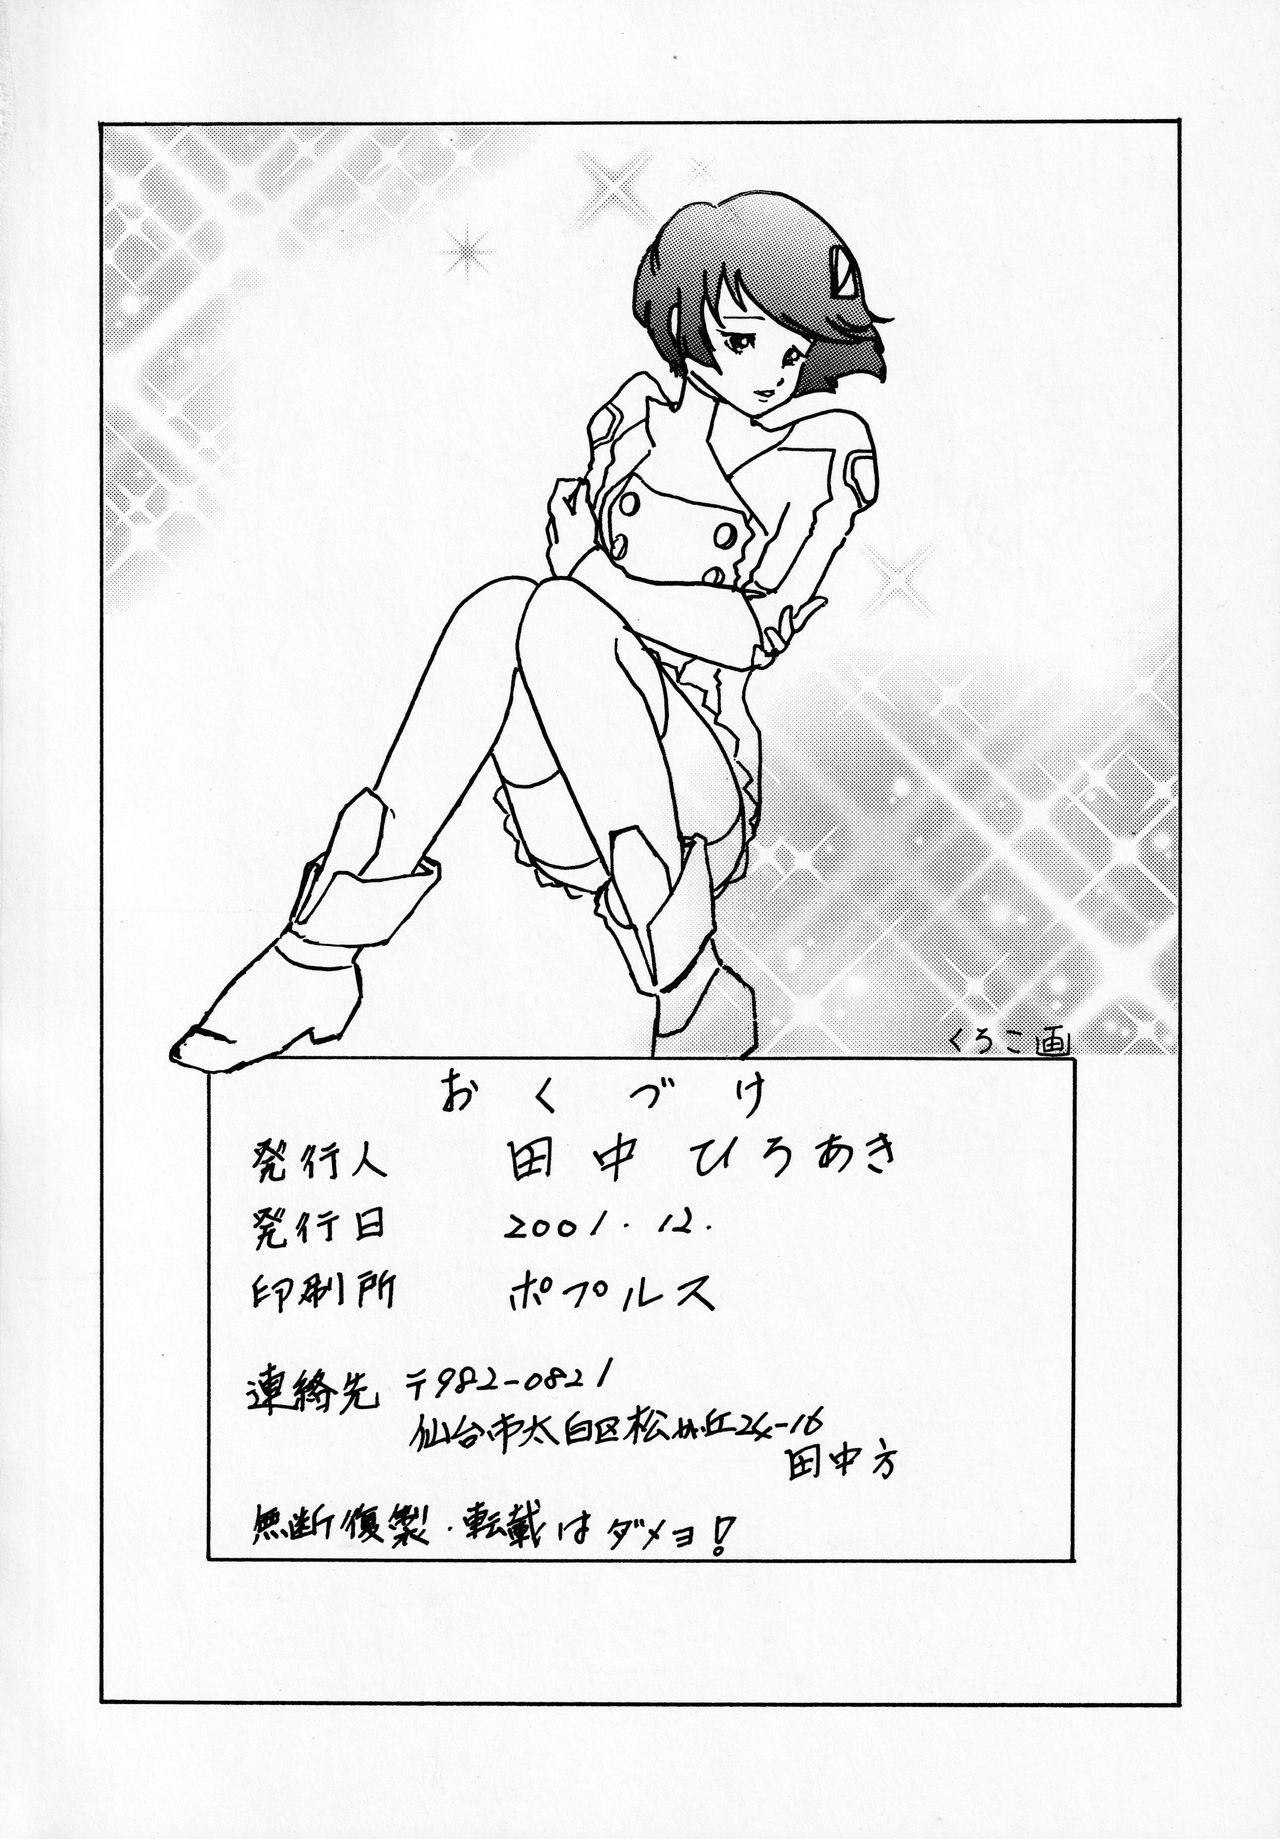 くろこ画
おくづけ
発行人 田中ひろあき
発行日 2001.12.
印刷所 ポプルス
連絡先 〒982-0821
仙台市太白区松が丘24-16
田中方
無断復製・転載はダメヨ!